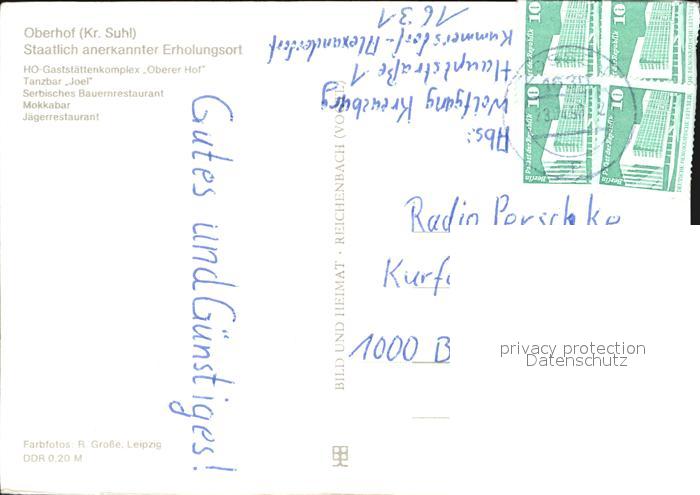 Oberhof (Kr. Suhl)
Staatlich anerkannter Erholungsort
HO-Gaststättenkomplex „Oberer Hof"
Tanzbar „Joel"
Serbisches Bauernrestaurant
Mokkabar
Jägerrestaurant
Gutes und Günstiges!
Farbfotos: R. Große, Leipzig
DDR 0,20 M
BILD UND HEIMAT · REICHENBACH (VOGTL)
Abs:
Wolfgang Kreuzburg
Hauptstraße 1
Kummersdorf-Alexanderdorf
1631
10
10
10 Palast der Republik Berlin
10 Palast der Republik Berlin
1630
Radio
Kurf
1000 B
privacy protection
Datenschutz